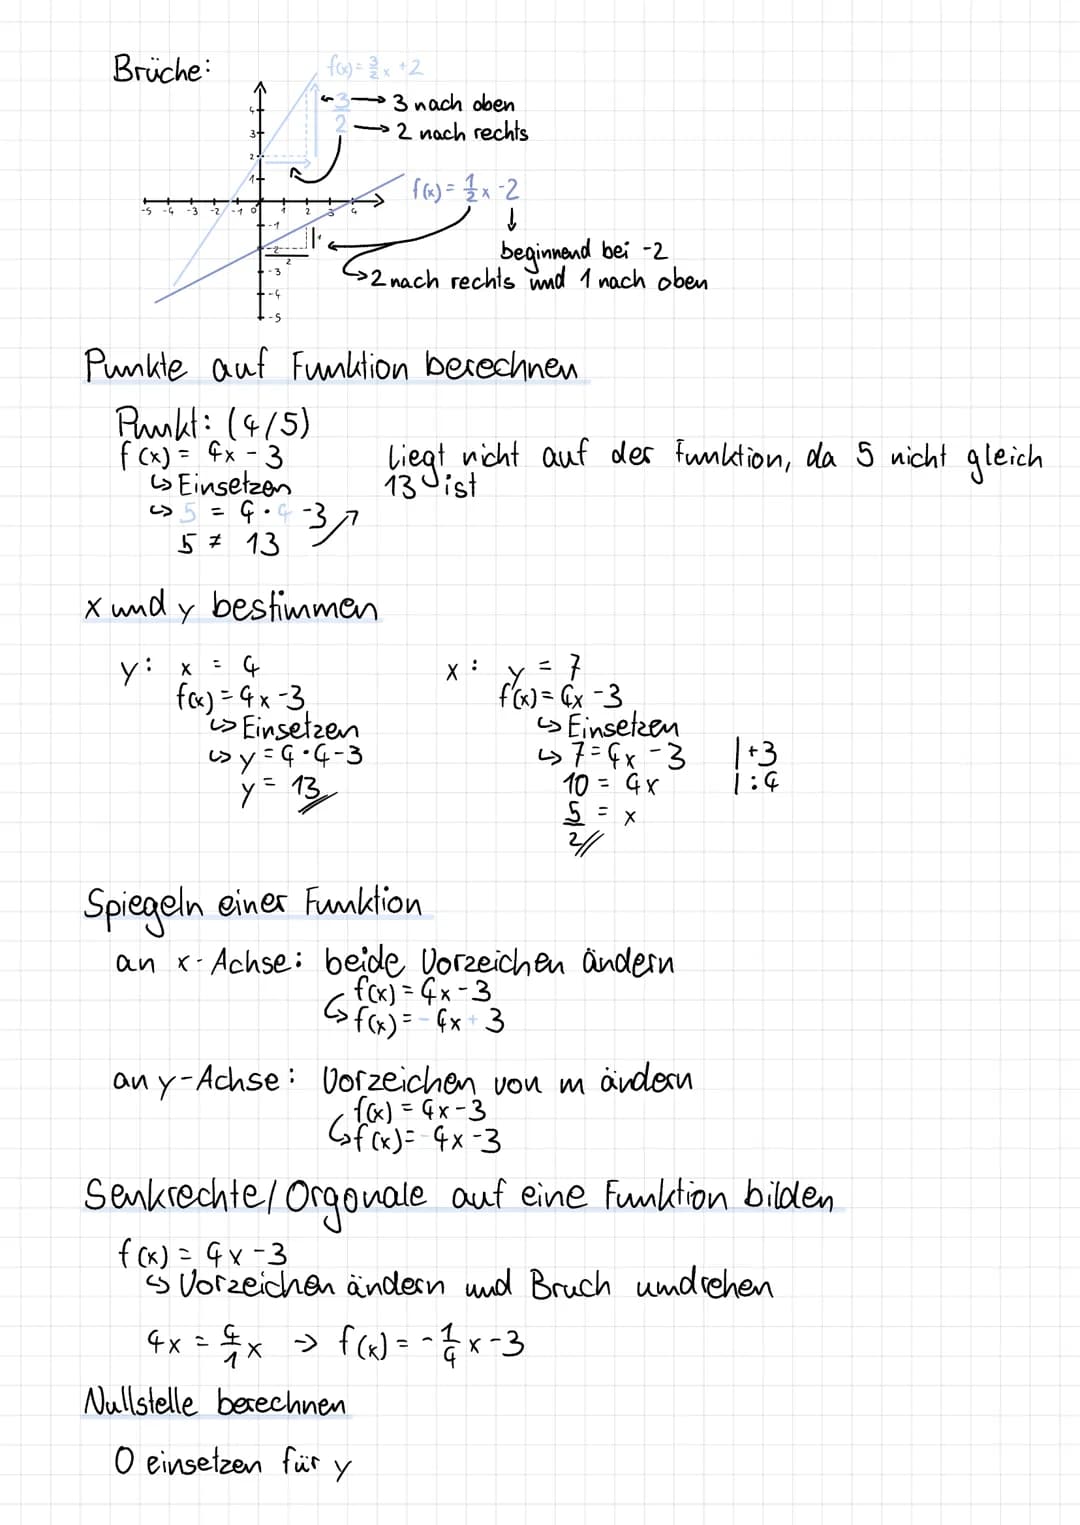 Brüche:
f(x) = 3/2 x + 2
3/2 → 3 nach oben
→ 2 nach rechts
f(x) = 1/2 x - 2
↓
beginnend bei -2
↳ 2 nach rechts und 1 nach oben
4
3
2
1
-5 -4 -3 -2 -1 0 1 2 3 4
-1
-2
1
2
-3
-4
-5
Punkte auf Funktion berechnen
Punkt: (4/5)
f(x) = 4x - 3
↳ Einsetzen
↳ 5 = 4 · 4 - 3
5 ≠ 13
Liegt nicht auf der Funktion, da 5 nicht gleich
13 ist
x und y bestimmen
y: x = 4
f(x) = 4x - 3
↳ Einsetzen
↳ y = 4 · 4 - 3
y = 13
x: y = 7
f(x) = 4x - 3
↳ Einsetzen
↳ 7 = 4x - 3 | + 3
10 = 4x | : 4
5/2 = x
Spiegeln einer Funktion
an x-Achse: beide Vorzeichen ändern
f(x) = 4x - 3
↳ f(x) = - 4x + 3
an y-Achse: Vorzeichen von m ändern
f(x) = 4x - 3
↳ f(x) = - 4x - 3
Senkrechte/Orgonale auf eine Funktion bilden
f(x) = 4x - 3
↳ Vorzeichen ändern und Bruch umdrehen
4x = 4/1 x → f(x) = - 1/4 x - 3
Nullstelle berechnen
0 einsetzen für y